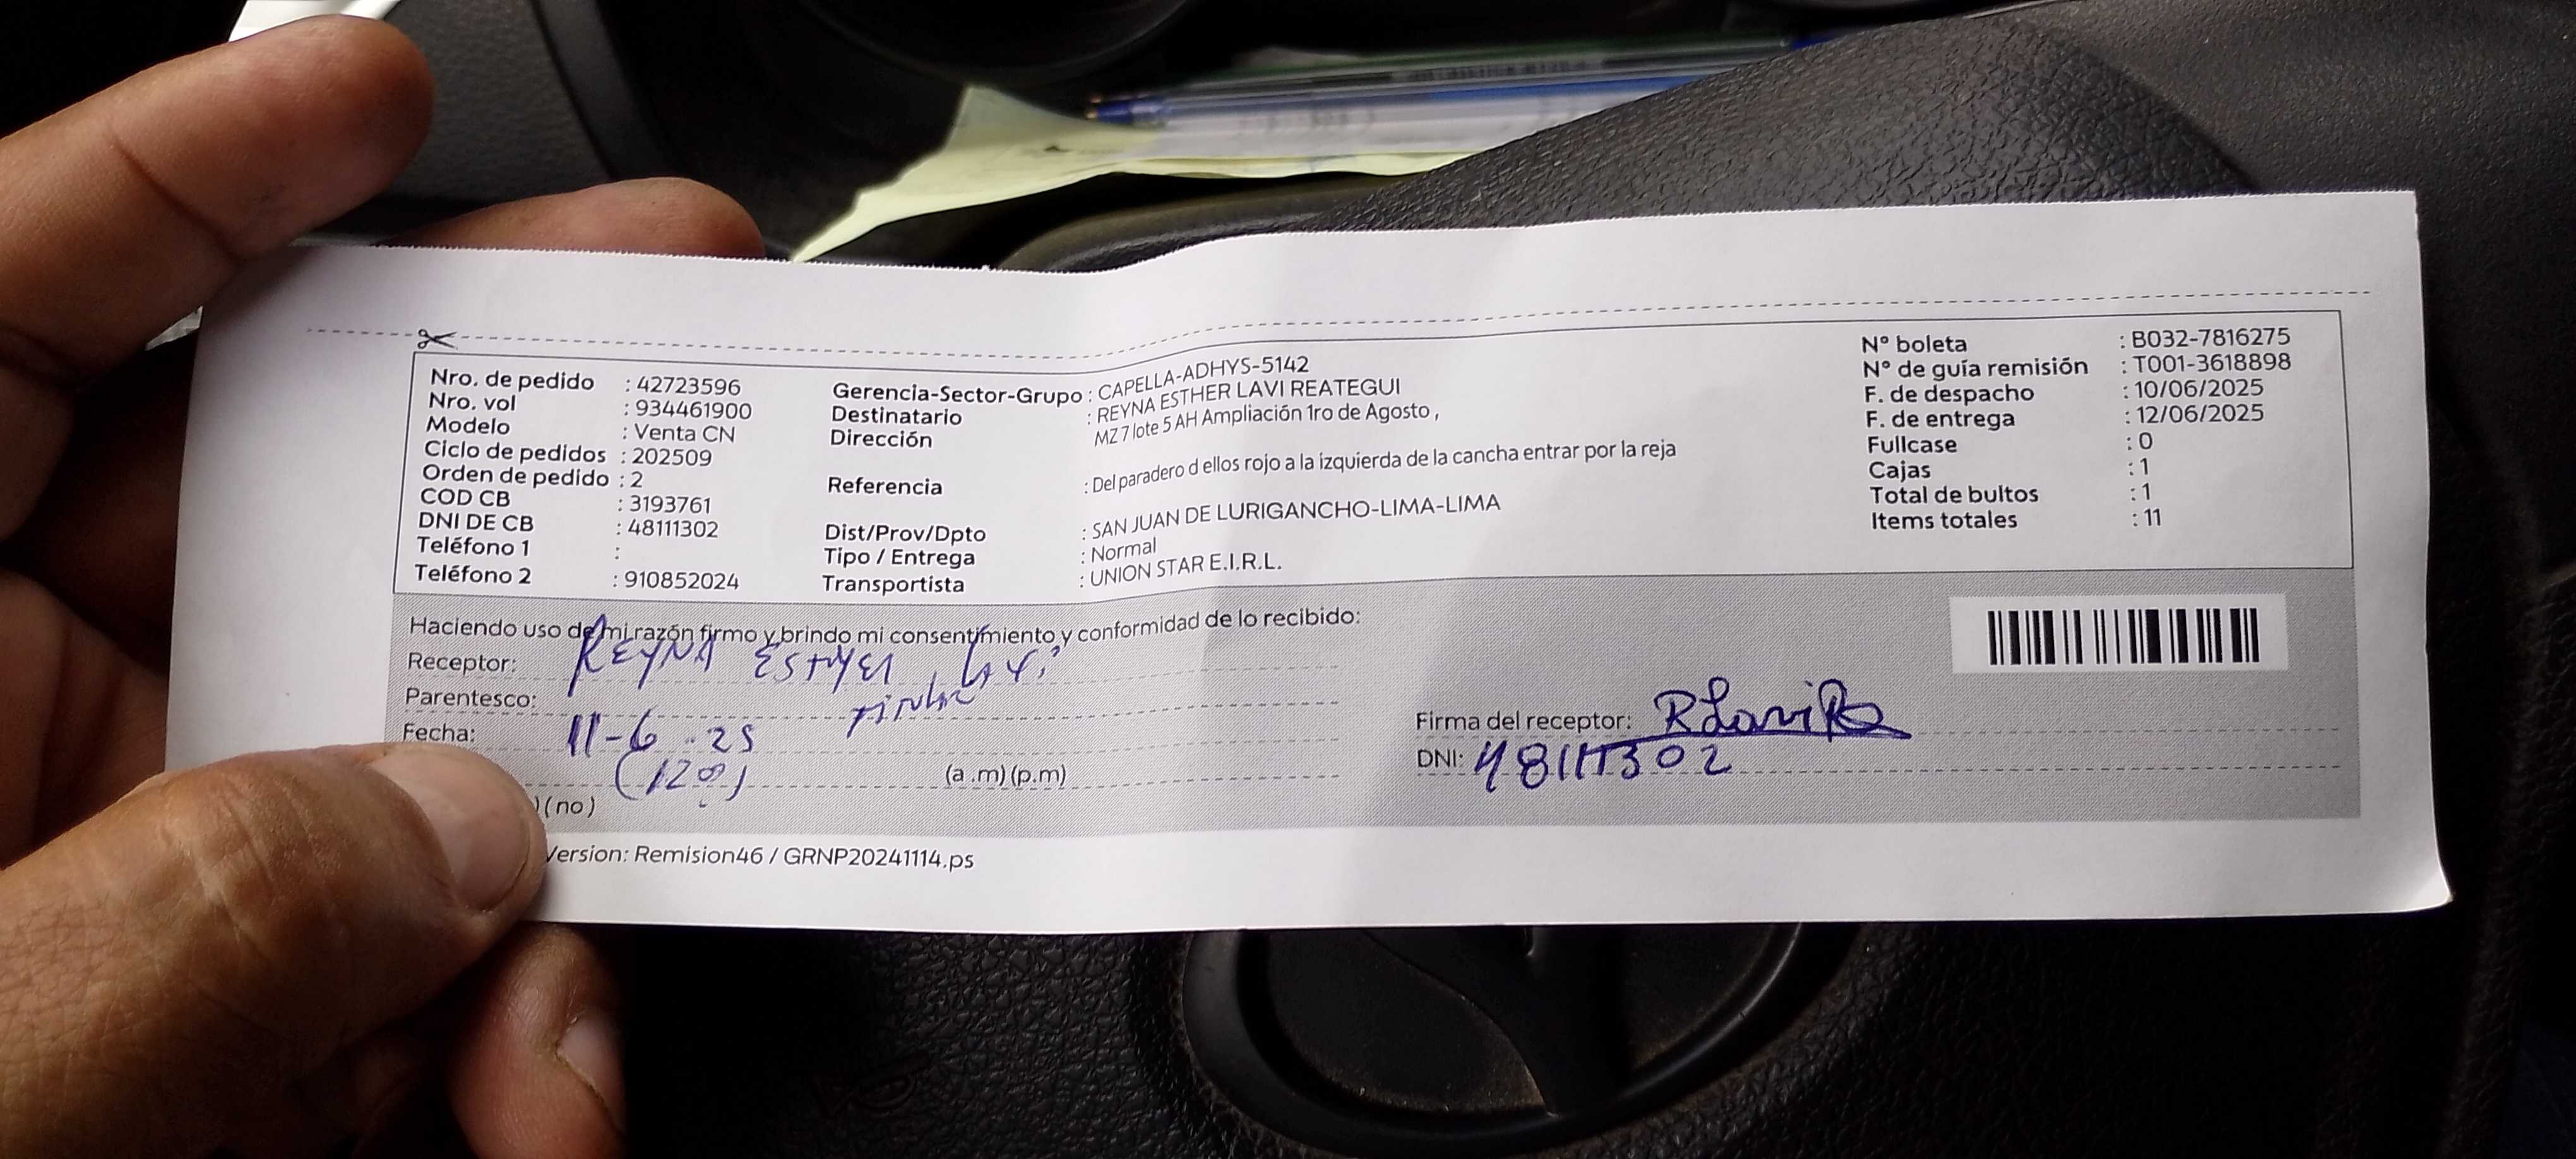 Nro. de pedido : 42723596
Nro. vol : 934461900
Modelo : Venta CN
Ciclo de pedidos : 202509
Orden de pedido : 2
COD CB : 3193761
DNI DE CB : 48111302
Teléfono 1 :
Teléfono 2 : 910852024
Gerencia-Sector-Grupo : CAPELLA-ADHYS-5142
Destinatario : REYNA ESTHER LAVI REATEGUI
Dirección MZ 7 lote 5 AH Ampliación 1ro de Agosto ,
Referencia : Del paradero d ellos rojo a la izquierda de la cancha entrar por la reja
Dist/Prov/Dpto : SAN JUAN DE LURIGANCHO-LIMA-LIMA
Tipo / Entrega : Normal
Transportista : UNION STAR E.I.R.L.
N° boleta : B032-7816275
N° de guía remisión : T001-3618898
F. de despacho : 10/06/2025
F. de entrega : 12/06/2025
Fullcase : 0
Cajas : 1
Total de bultos : 1
Items totales : 11
Haciendo uso de mi razón firmo y brindo mi consentimiento y conformidad de lo recibido:
Receptor: REYNA ESTHER LAVI
Parentesco: Titular
Fecha: 11-6-25
(1200) (a .m) (p.m)
) ( no )
Firma del receptor: RLaviR
DNI: 48111302
Version: Remision46 / GRNP20241114.ps